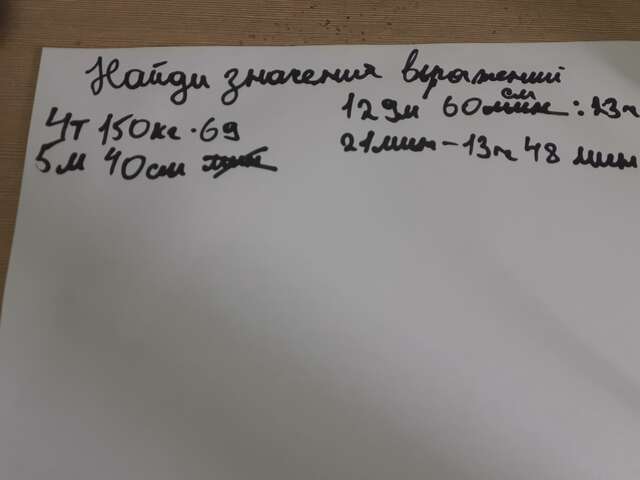 Найди значения выражений
4т 150кг · 69
5м 40см
129м 60 см : 23
21мин - 13ч 48 мин